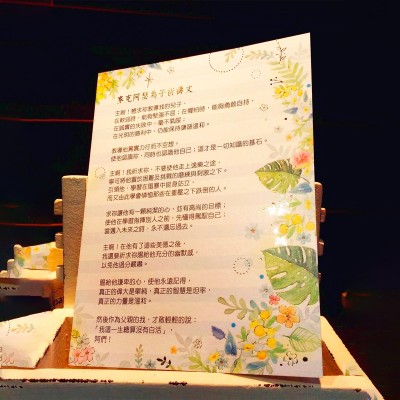 麥克阿瑟為子祈禱文
主啊！懇求祢教導我的兒子，
在軟弱時，能夠堅強不屈；在懼怕時，能夠勇敢自持，
在誠實的失敗中，毫不氣餒；
在光明的勝利中，仍能保持謙遜溫和。
教導他篤實力行而不空想，
使他認識祢，同時也認識他自己；這才是一切知識的基石。
主啊！我祈求祢，不要使他走上逸樂之途，
寧可將他置於困難及挑戰的磨練與刺激之下。
引領他，學習在風暴中挺身站立，
而又由此學會憐恤那些在重壓之下跌倒的人。
求祢讓他有一顆純潔的心，並有高尚的目標；
使他在學習指揮別人之前，先懂得駕馭自己；
當邁入未來之時，永不遺忘過去。
主啊！在他有了這些美德之後，
我還要祈求祢賜給他充分的幽默感，
以免他過分嚴肅。
賜給他謙卑的心，使他永遠記得，
真正的偉大是單純，真正的智慧是坦率，
真正的力量是溫和。
然後作為父親的我，才敢輕輕的說：
「我這一生總算沒有白活」，
阿們！